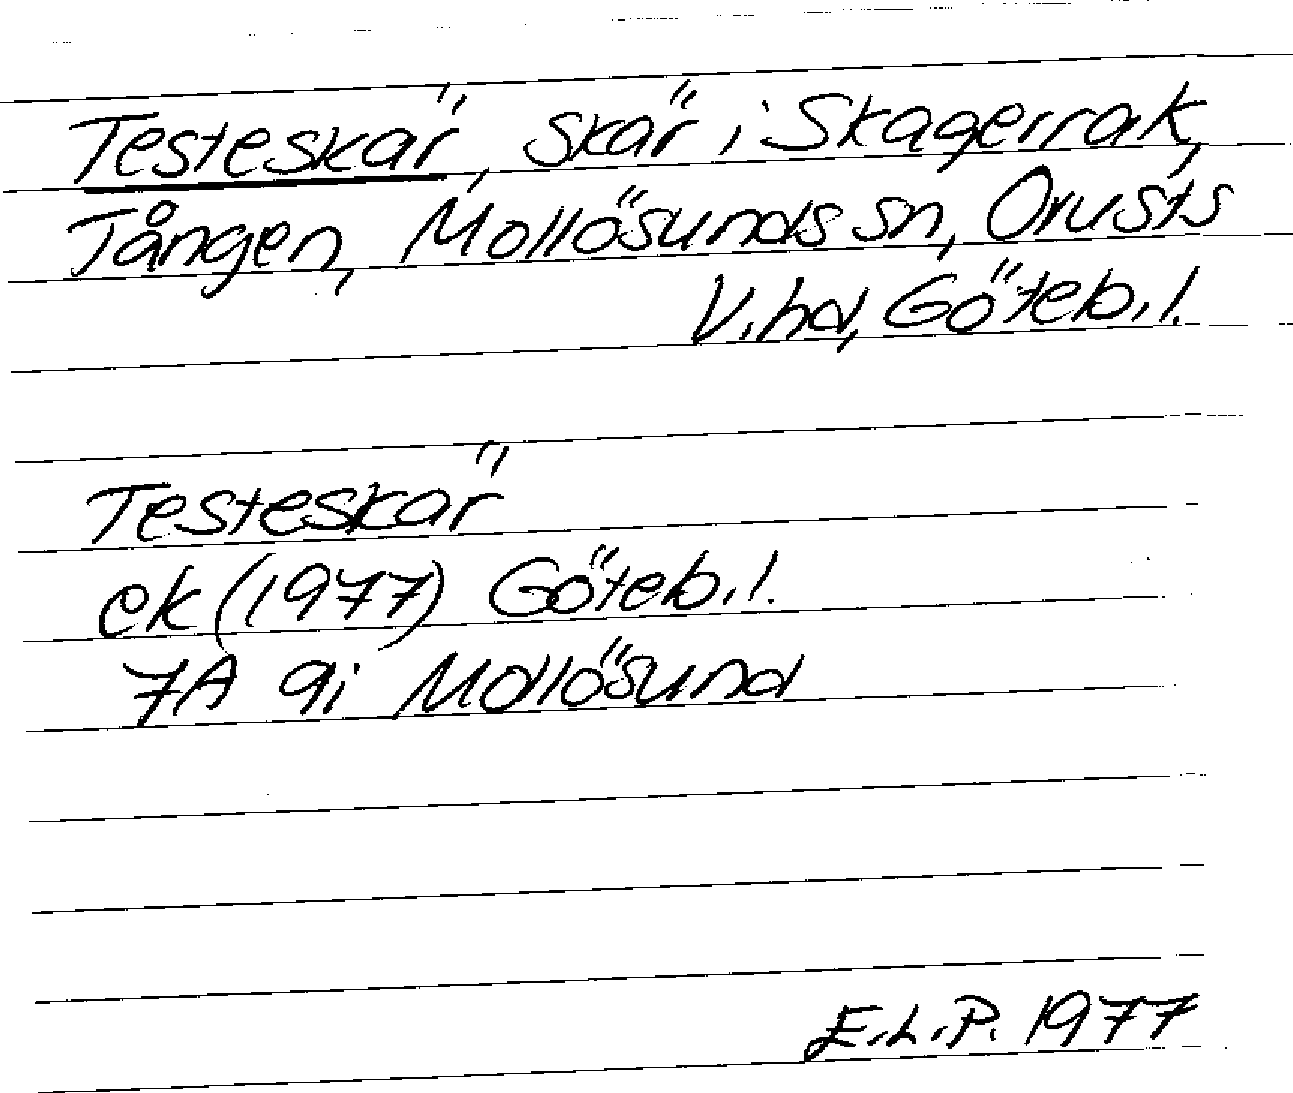 Testeskär, skär i Skagerrak,
Tången, Mollösunds sn, Orusts
V. hd, Göteb. l.
Testeskär
ek (1977) Göteb. l.
7A 9i Mollösund
E.L.P. 1977